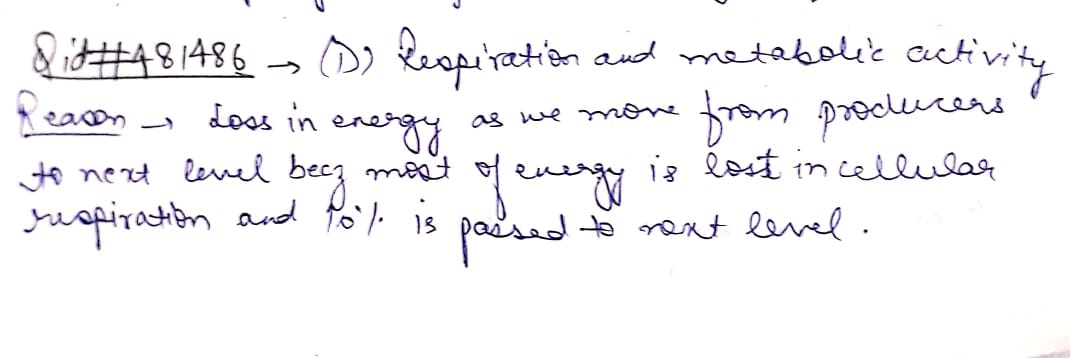 Qid#481486 → (D) Respiration and metabolic activity
Reason → Loss in energy as we move from producers
to next level becz most of energy is lost in cellular
respiration and 10% is passed to next level.